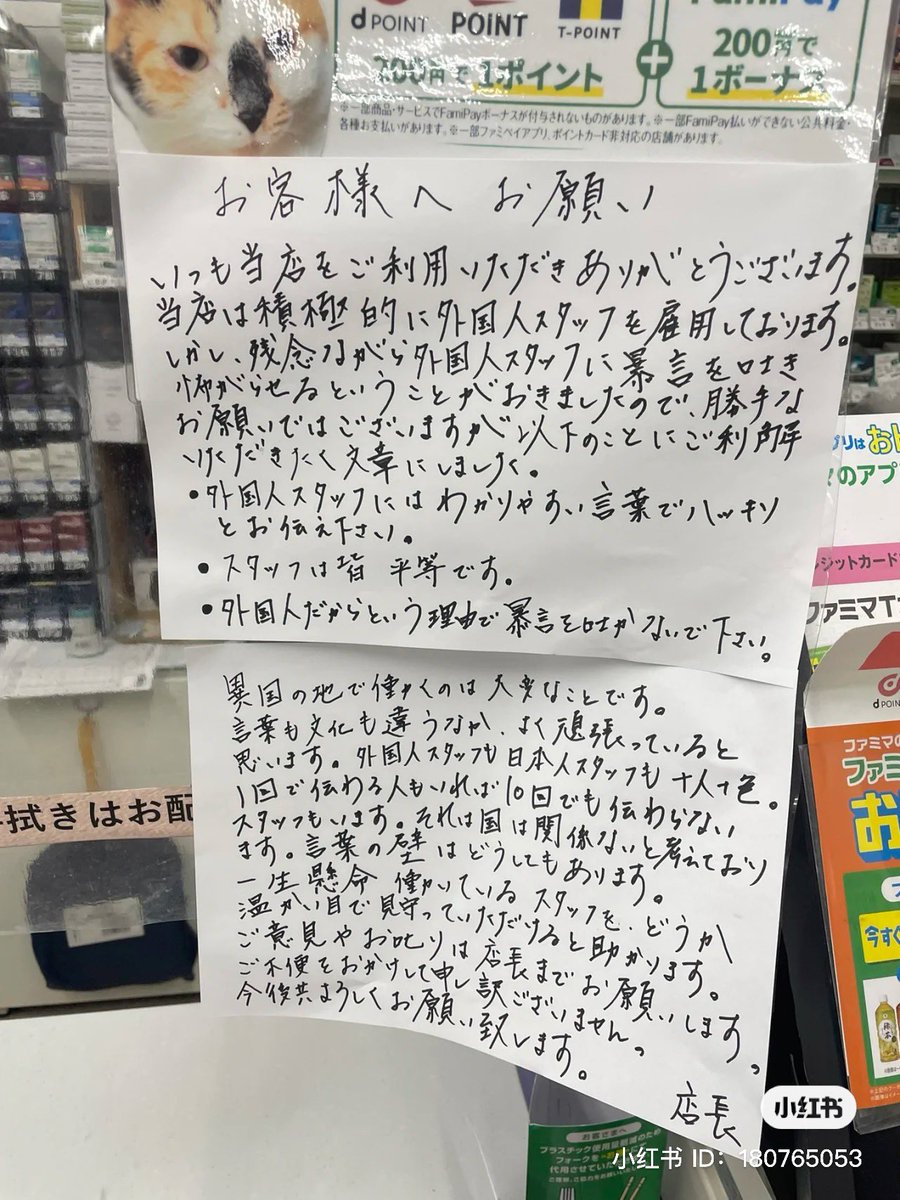 d POINT
POINT
T-POINT
200円で1ポイント
FamiPay
200円で
1ボーナス
※一部商品・サービスでFamiPayボーナスが付与されないものがあります。※一部FamiPay払いができない公共料金・
各種お支払いがあります。※一部ファミペイアプリ、ポイントカード非対応の店舗があります。
お客様へ お願い
いつも当店をご利用いただきありがとうございます。
当店は積極的に外国人スタッフを雇用しております。
しかし、残念ながら外国人スタッフに暴言を吐き
怖がらせるということがおきましたので、勝手な
お願いではございますが以下のことにご利解
いただきたく文章にしました。
・外国人スタッフにはわかりやすい言葉でハッキリ
とお伝え下さい。
・スタッフは皆 平等です。
・外国人だからという理由で暴言を吐かないで下さい。
異国の地で働くのは大変なことです。
言葉も文化も違うなか、よく頑張っていると
思います。外国人スタッフも日本人スタッフも十人十色。
1回で伝わる人もいれば10回でも伝わらない
スタッフもいます。それは国は関係ないと考えており
ます。言葉の壁はどうしてもあります。
一生懸命働いているスタッフを、どうか
温かい目で見守っていただけると助かります。
ご意見やお叱りは店長までお願いします。
ご不便をおかけして申し訳ございません。
今後共よろしくお願い致します。
店長
拭きはお配
のアプ
レジットカード
ファミマT
d POIN
ファミマの
ファミ
お
今すぐ
お客さまへ
プラスチック使用量削減のため
フォークを
代用させていた
小红书
小红书 ID：180765053